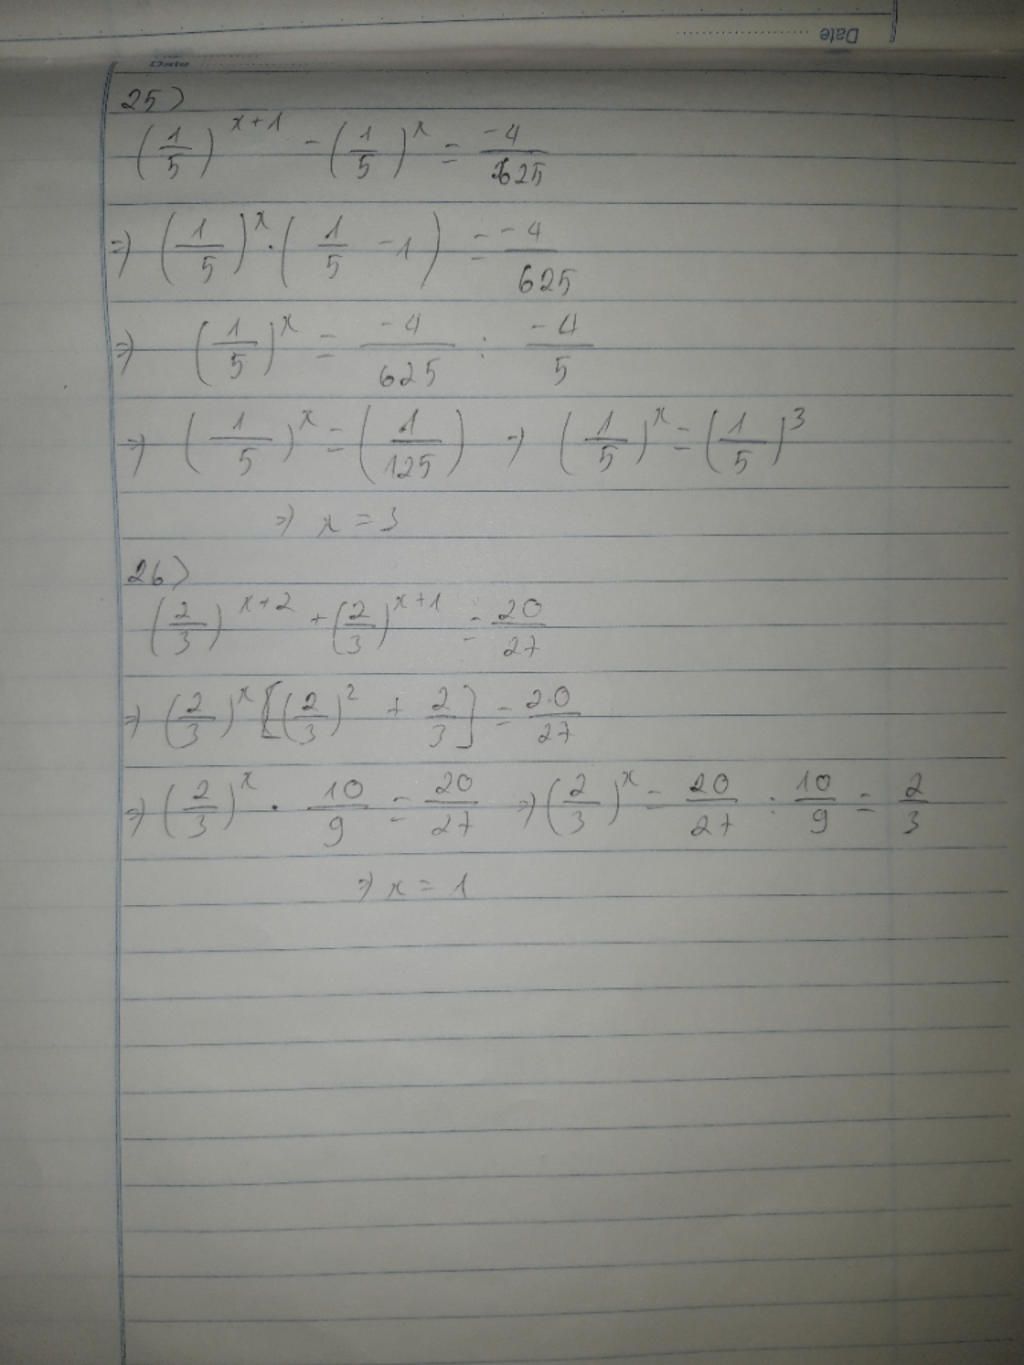 Date
25)
(1/5)^(x+1) - (1/5)^x = -4/625
⇒ (1/5)^x · (1/5 - 1) = -4/625
⇒ (1/5)^x = -4/625 : -4/5
⇒ (1/5)^x = (1/125) ⇒ (1/5)^x = (1/5)^3
⇒ x = 3
26)
(2/3)^(x+2) + (2/3)^(x+1) = 20/27
⇒ (2/3)^x [(2/3)^2 + 2/3] = 20/27
⇒ (2/3)^x · 10/9 = 20/27 ⇒ (2/3)^x = 20/27 : 10/9 = 2/3
⇒ x = 1